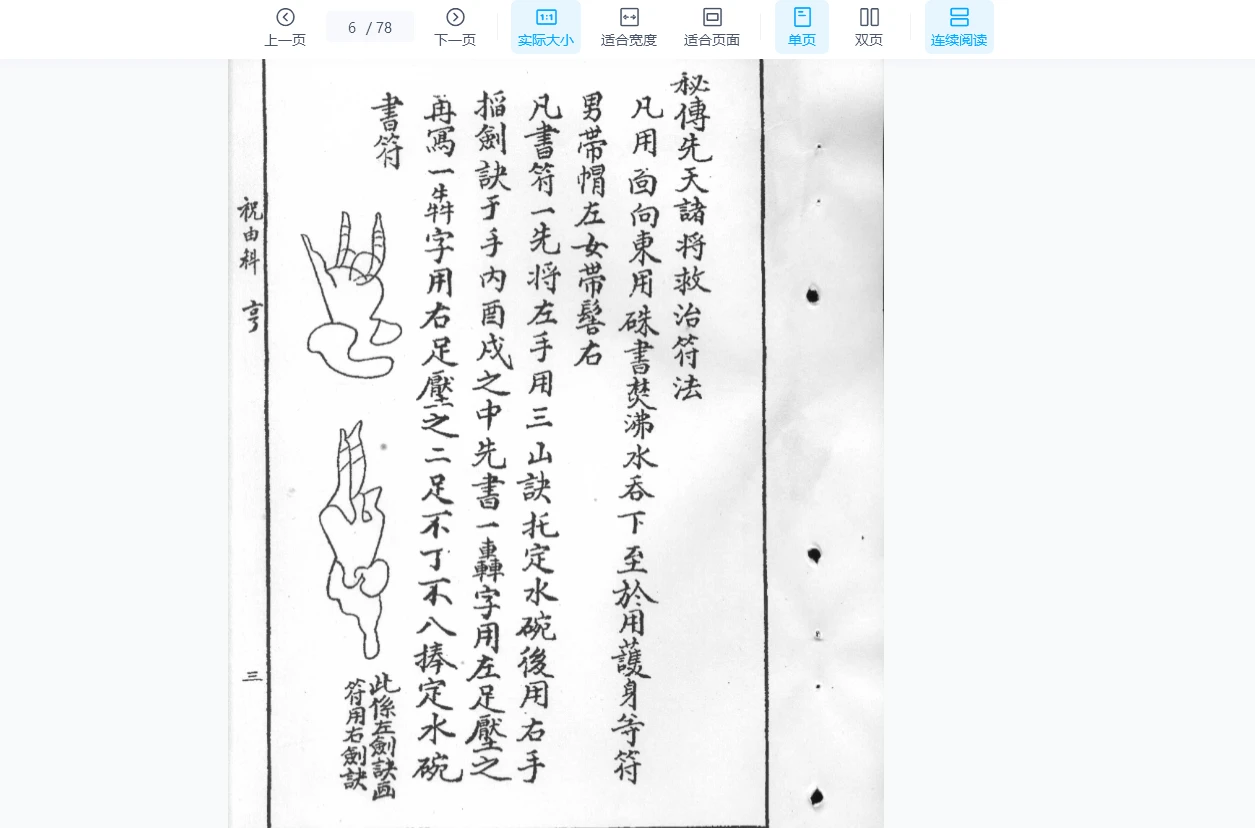 上一页
6 / 78
下一页
1:1
实际大小
适合宽度
适合页面
单页
双页
连续阅读
秘傳先天諸將救治符法
凡用面向東用硃書焚沸水吞下至於用護身等符
男帶帽左女帶髻右
凡書符一先將左手用三山訣托定水碗後用右手
搯劍訣于手內酉戌之中先書一轟字用左足壓之
再寫一犇字用右足壓之二足不丁不八捧定水碗
書符
此係左劍訣画
符用右劍訣
祝由科 亨
三